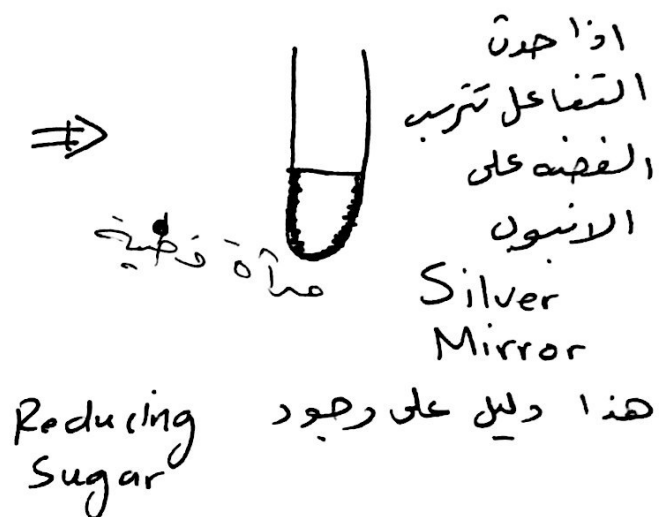 اذا حدث
التفاعل تترسب
الفضه على
الانبوب
مرآة فضية
Silver
Mirror
هذا دليل على وجود Reducing
Sugar